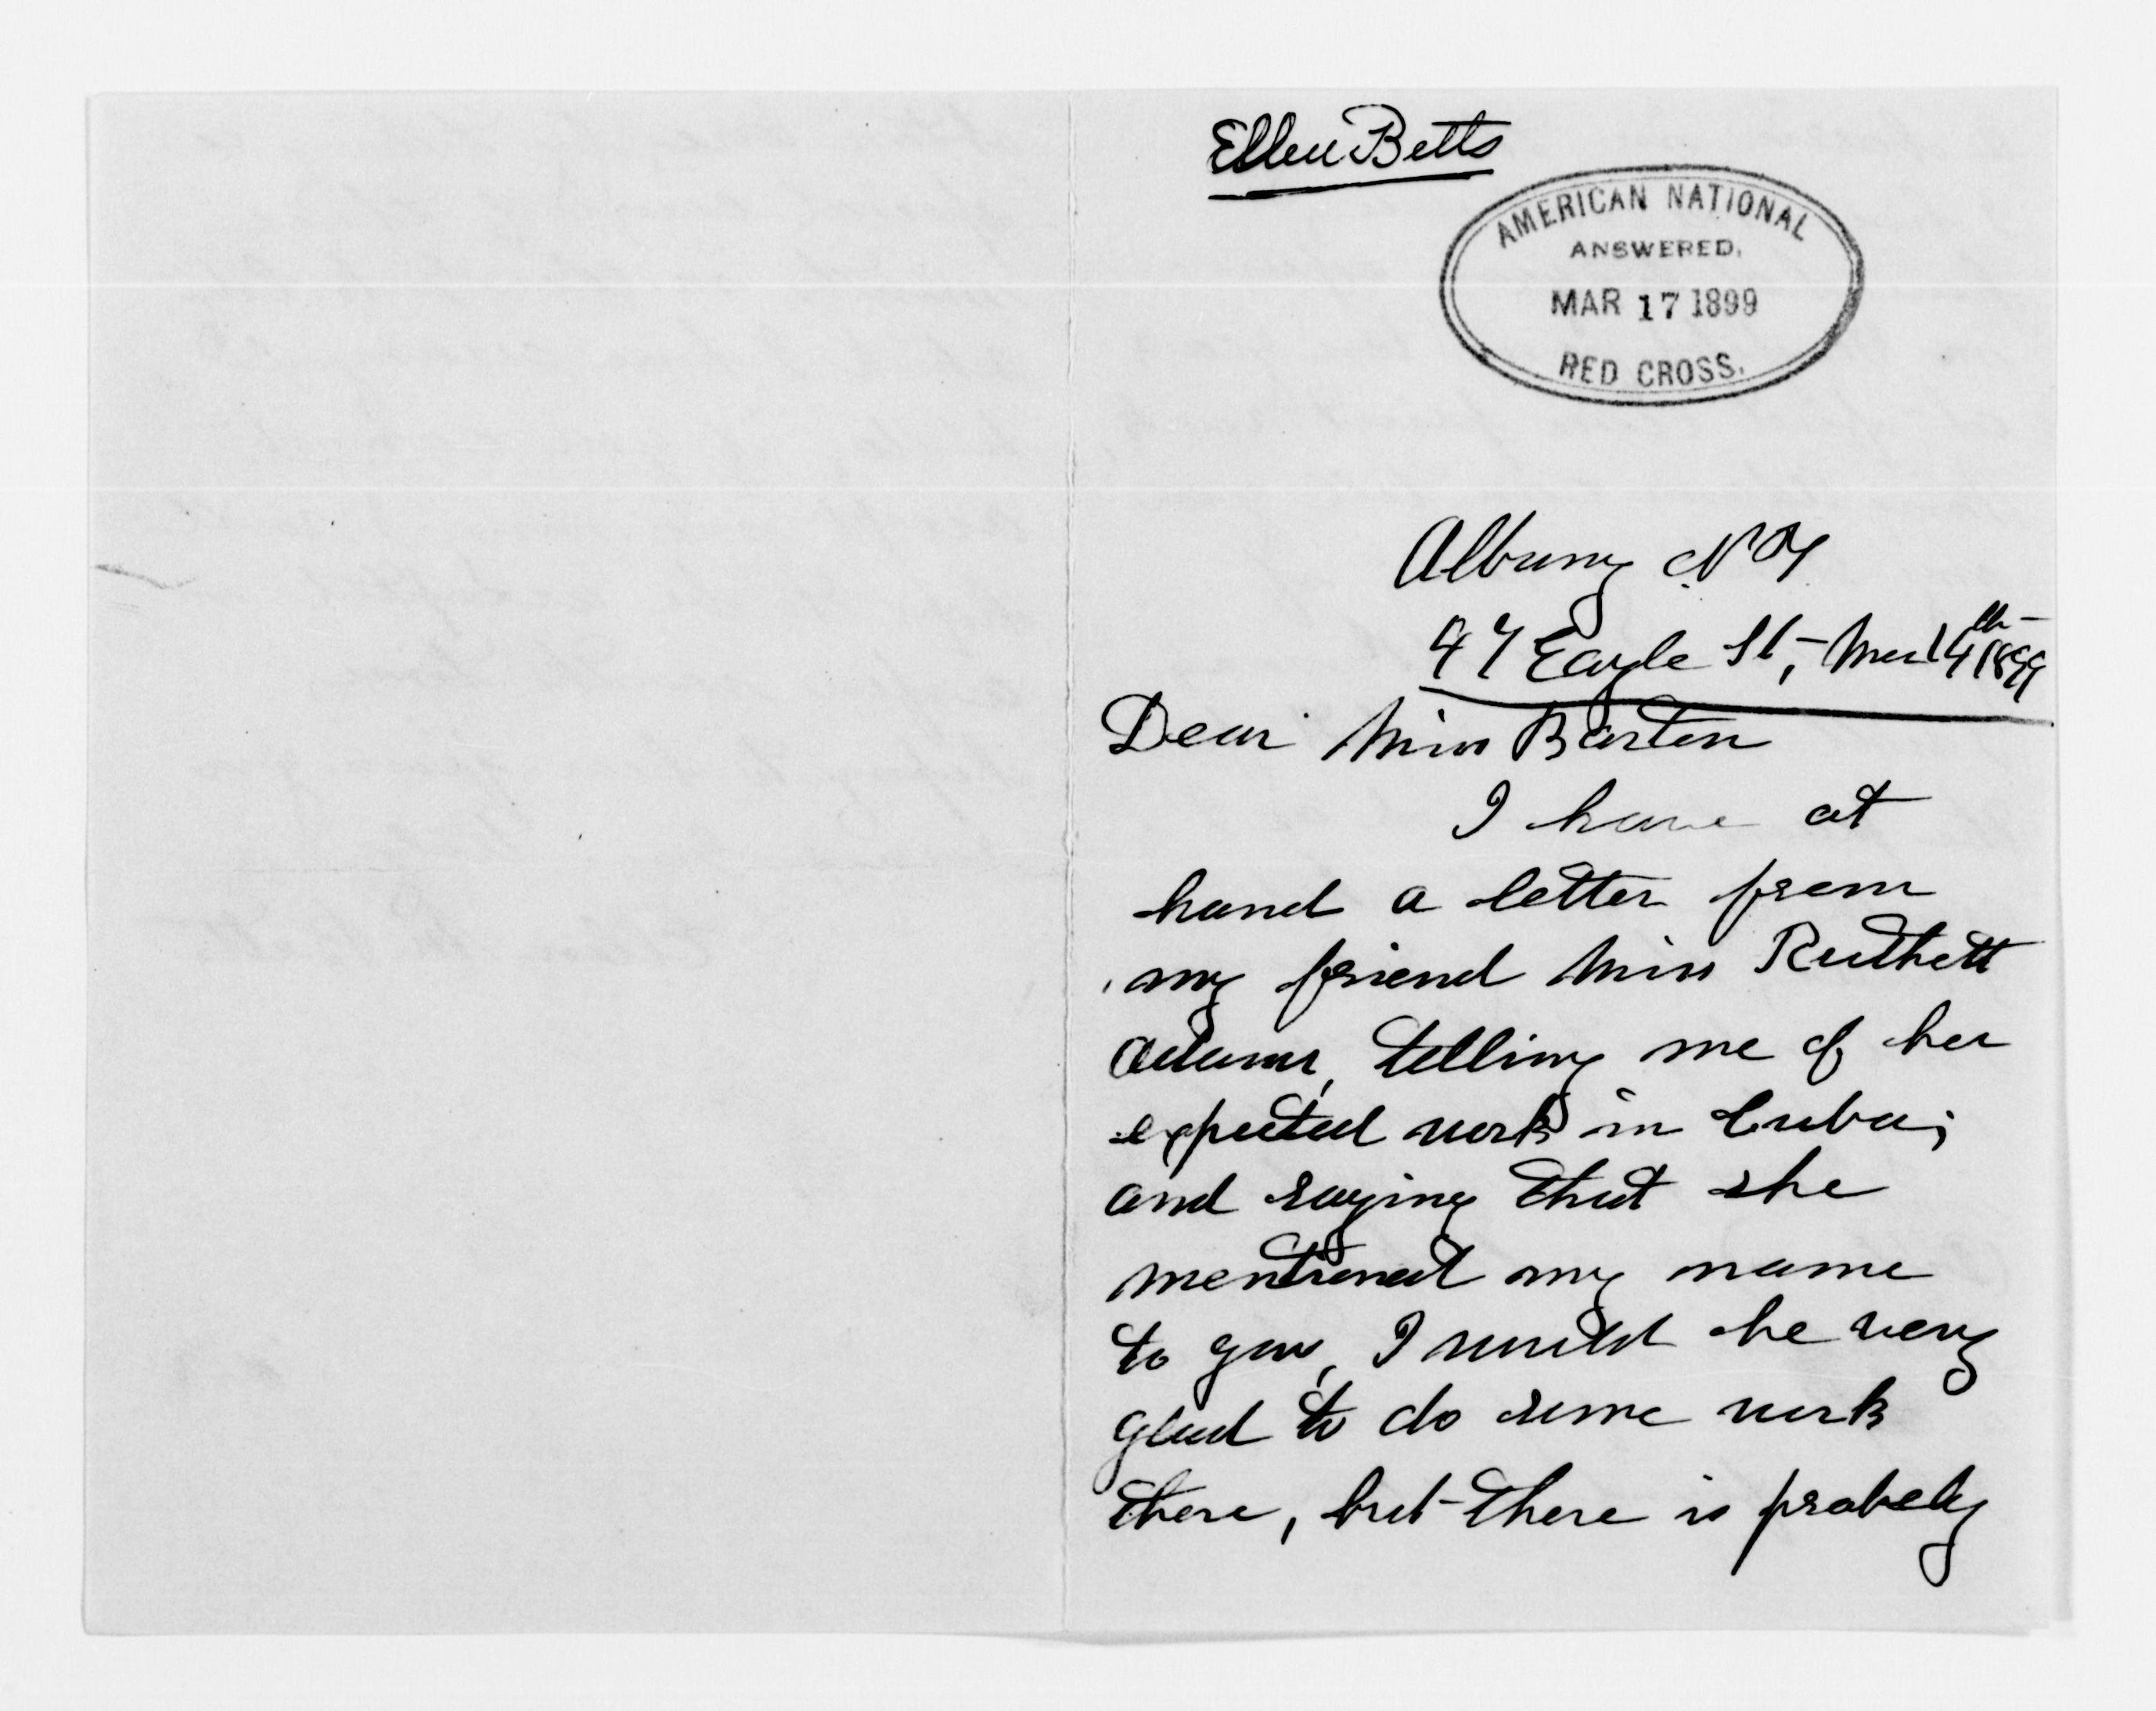 Ellen Betts
AMERICAN NATIONAL
ANSWERED.
MAR 17 1899
RED CROSS.
Albany N.Y
47 Eagle St, Mar 14th 1899
Dear Miss Barton
I have at
hand a letter from
my friend Miss Ruthett
Adams, telling me of her
expected work in Cuba;
and saying that she
mentioned my name
to you, I would be very
glad to do some work
there, but there is probely